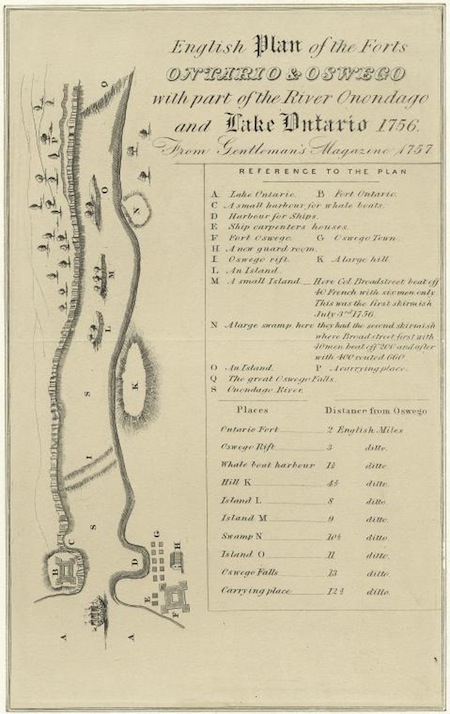 English Plan of the Forts
ONTARIO & OSWEGO
with part of the River Onondago
and Lake Ontario 1756.
From Gentleman's Magazine 1757
REFERENCE TO THE PLAN
A Lake Ontario. B Fort Ontario.
C A small harbour for whale boats.
D Harbour for Ships.
E Ship carpenters houses.
F Fort Oswego. G Oswego Town.
H A new guard room.
I Oswego rift. K A large hill.
L An Island.
M A small Island. Here Col. Broadstreet beat off
40 French with six men only
This was the first skirmish
July 3rd 1756
N A large swamp here they had the second skirmish
where Broadstreet first with
10 men beat off 200 and after
with 400 routed 660
O An Island. P A carrying place.
Q The great Oswego Falls.
S Onondago River.
Places Distance from Oswego
Ontario Fort 2 English Miles
Oswego Rift 3 ditto.
Whale boat harbour ditto.
Hill K ditto.
Island L 8 ditto.
Island M 9 ditto.
Swamp N ditto.
Island O 11 ditto.
Oswego Falls 13 ditto.
Carrying place ditto.
Q
P
O
N
M
L
K
S
I
S
C
B
D
G
H
E
F
A
A